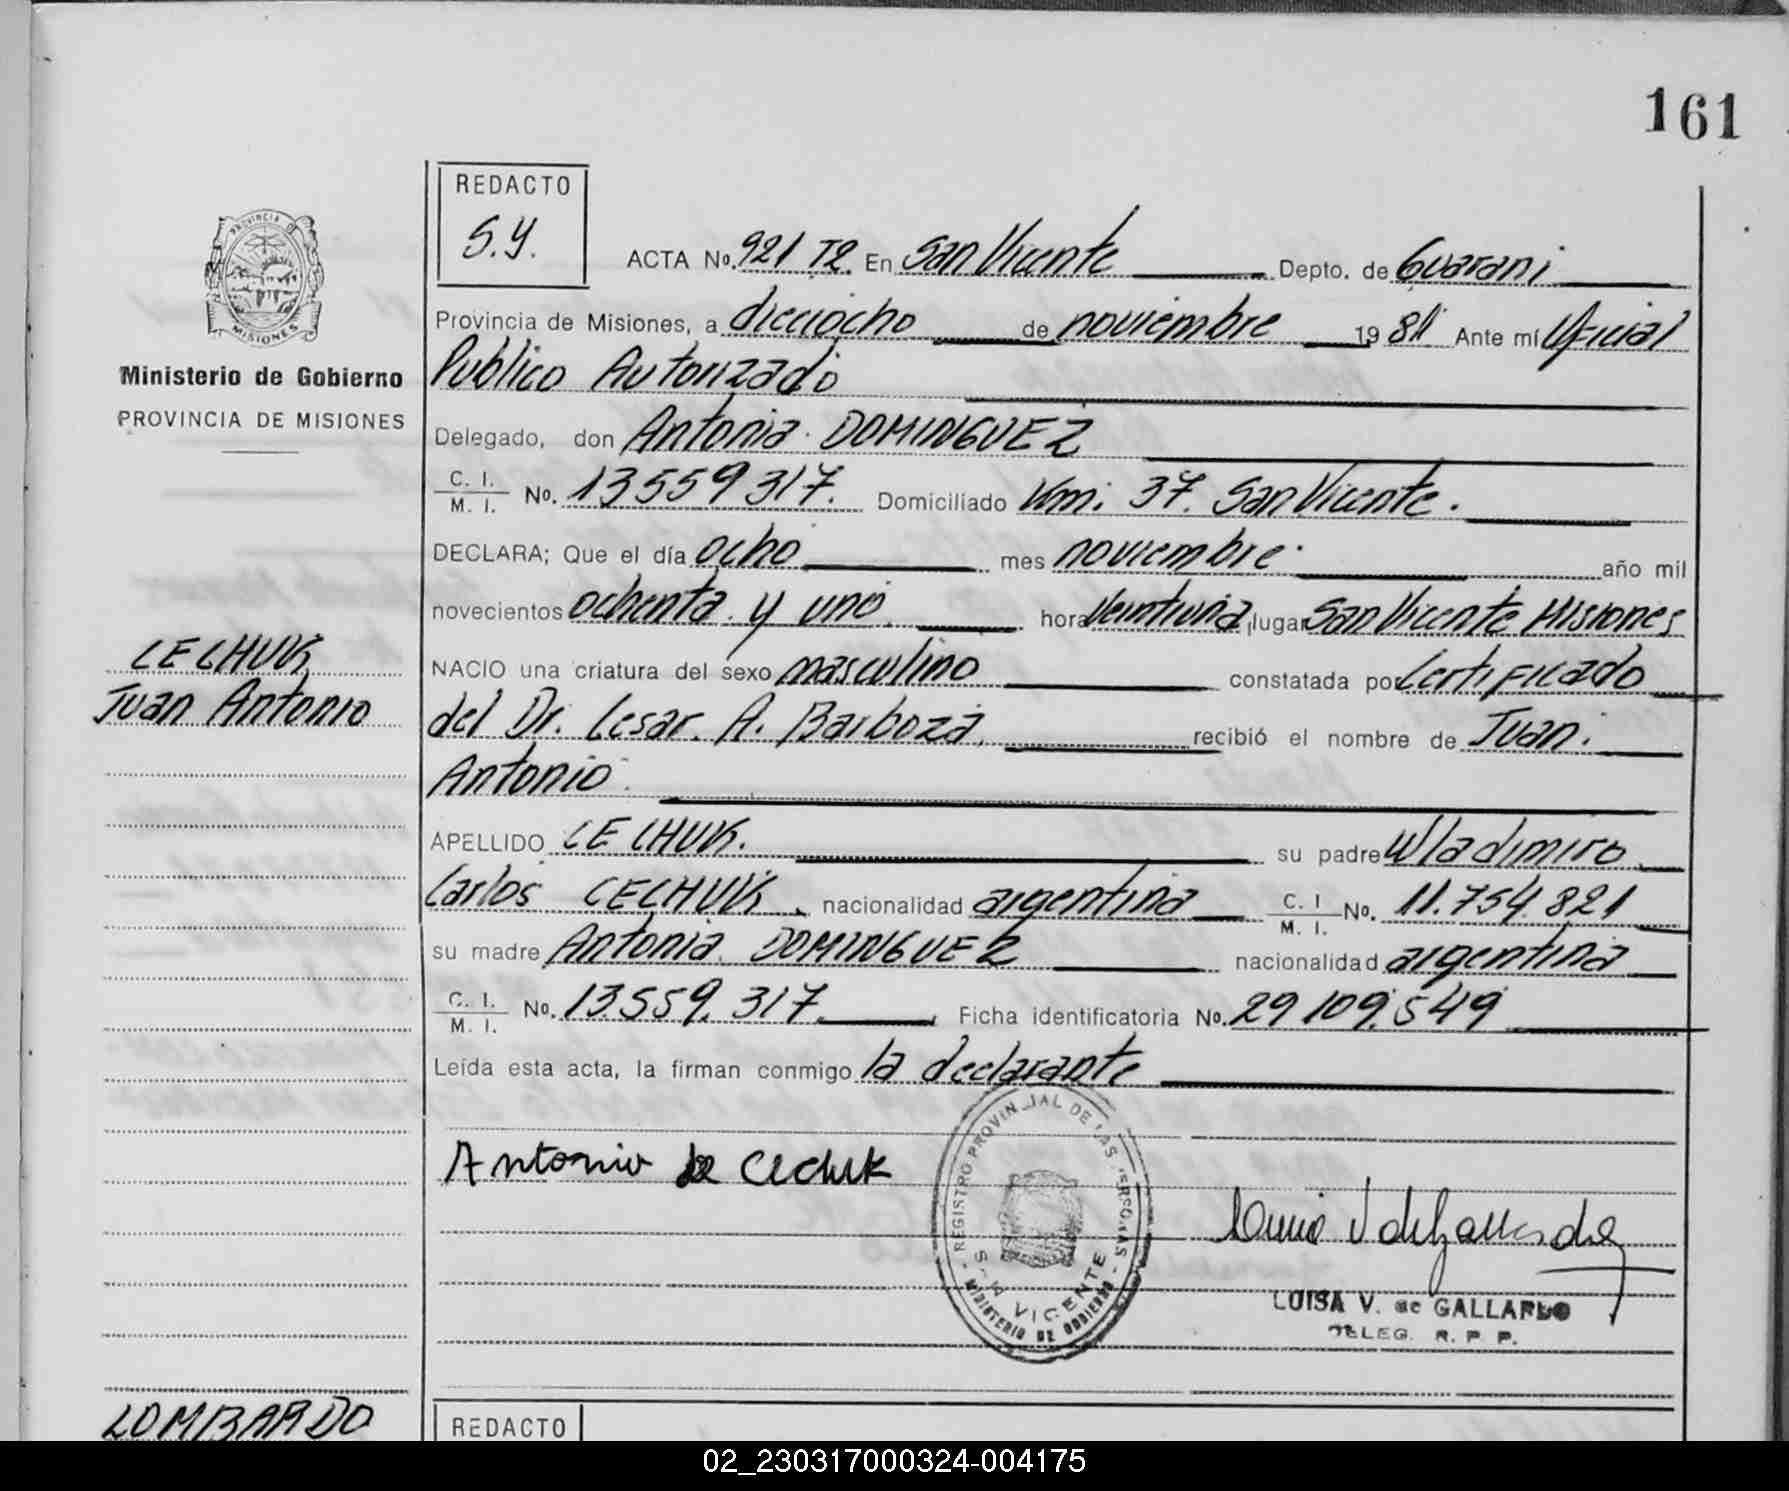 161
REDACTO
S.Y.
ACTA No. 921 T2. En San Vicente Depto. de Guarani
Provincia de Misiones, a dieciocho de noviembre 1981 Ante mí Oficial
Publico Autorizado
Delegado, don Antonia DOMINGUEZ
C. I.
M. I. No. 13559317. Domiciliado Km. 37. San Vicente.
DECLARA; Que el día ocho mes noviembre año mil
novecientos ochenta y uno hora veintiuna, lugar San Vicente Misiones
NACIO una criatura del sexo masculino constatada por Certificado
del Dr. Cesar. A. Barboza, recibió el nombre de Juan.
Antonio
APELLIDO CECHUK. su padre Wladimiro
Carlos CECHUK. nacionalidad argentina C. I
M. I. No. 11.754.821
su madre Antonia DOMINGUEZ nacionalidad argentina
C. I.
M. I. No. 13.559.317. Ficha identificatoria No. 29109.549
Leída esta acta, la firman conmigo la declarante
Antonia de Cechuk
REGISTRO PROVINCIAL DE LAS PERSONAS
SAN VICENTE
MINISTERIO DE GOBIERNO
LUISA V. de GALLARDO
DELEG. R. P. P.
PROVINCIA DE
MISIONES
Ministerio de Gobierno
PROVINCIA DE MISIONES
CECHUK
Juan Antonio
LOMBARDO
REDACTO
02_230317000324-004175